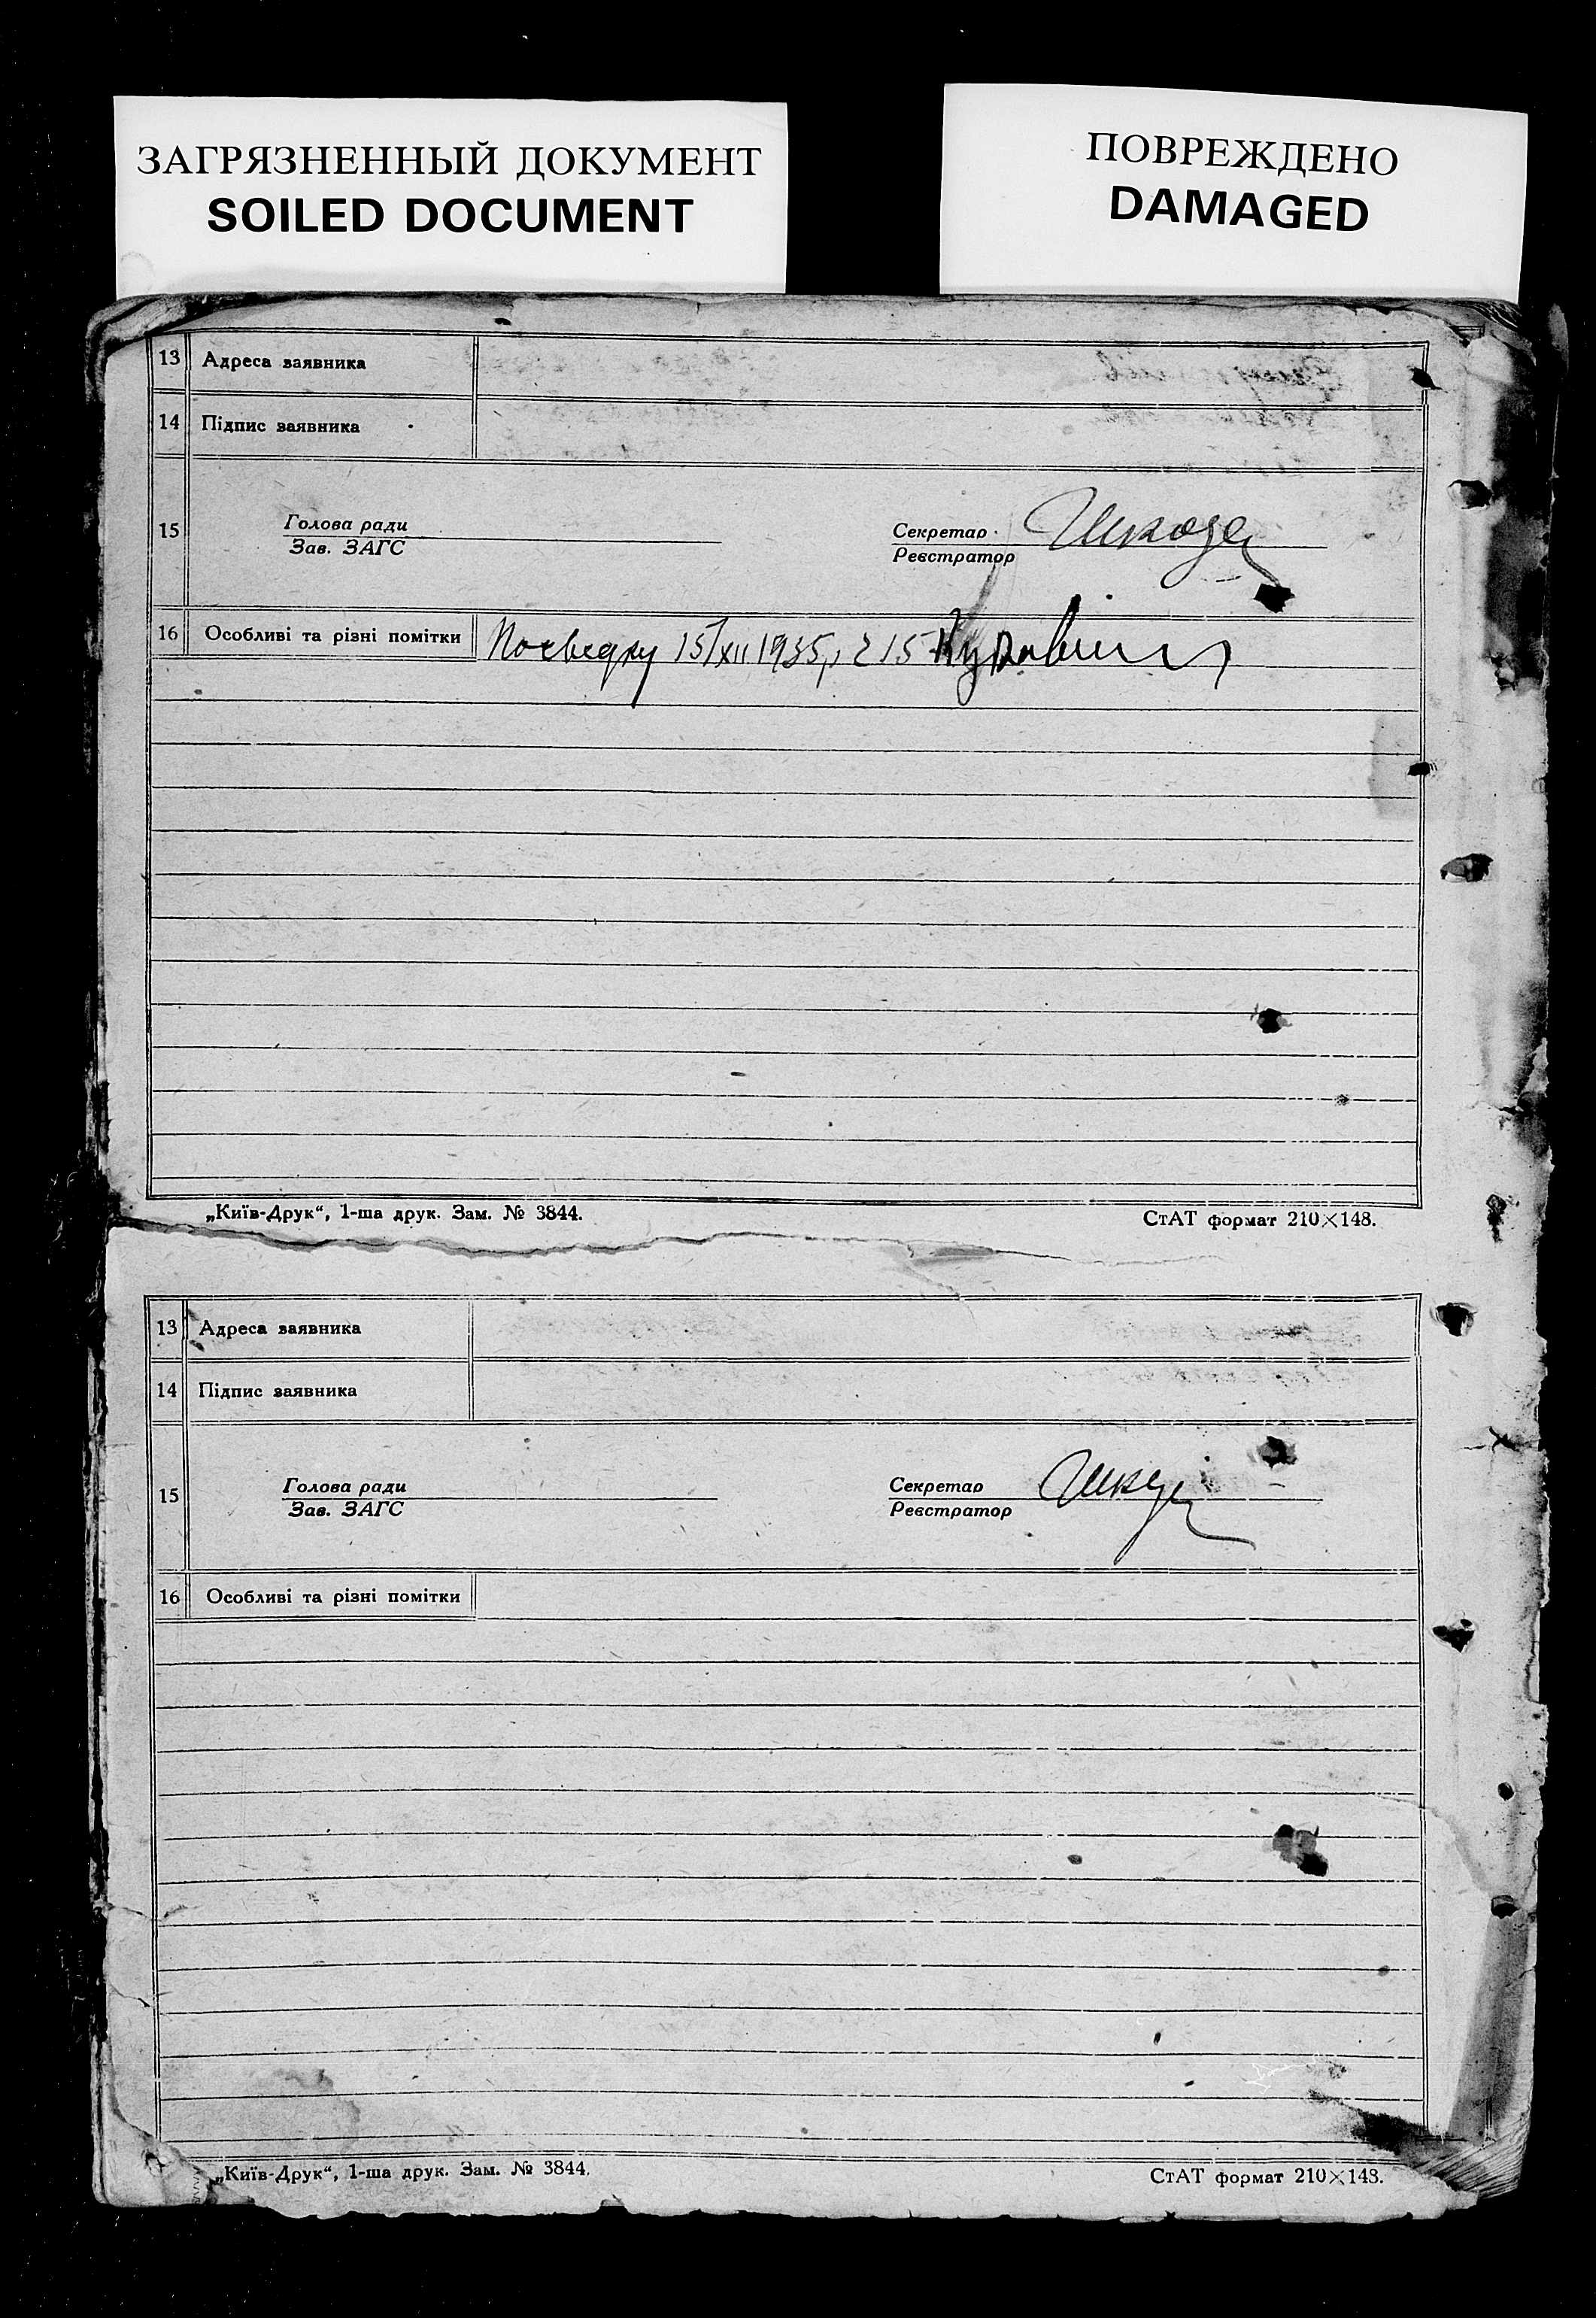 ЗАГРЯЗНЕННЫЙ ДОКУМЕНТ
SOILED DOCUMENT
ПОВРЕЖДЕНО
DAMAGED
13 Адреса заявника
14 Підпис заявника
15 Голова ради
Зав. ЗАГС
Секретар
Реєстратор
16 Особливі та різні помітки 15/XII 1935
„Київ-Друк“, 1-ша друк. Зам. № 3844. СтАТ формат 210×148.
13 Адреса заявника
14 Підпис заявника
15 Голова ради
Зав. ЗАГС
Секретар
Реєстратор
16 Особливі та різні помітки
„Київ-Друк“, 1-ша друк. Зам. № 3844. СтАТ формат 210×148.